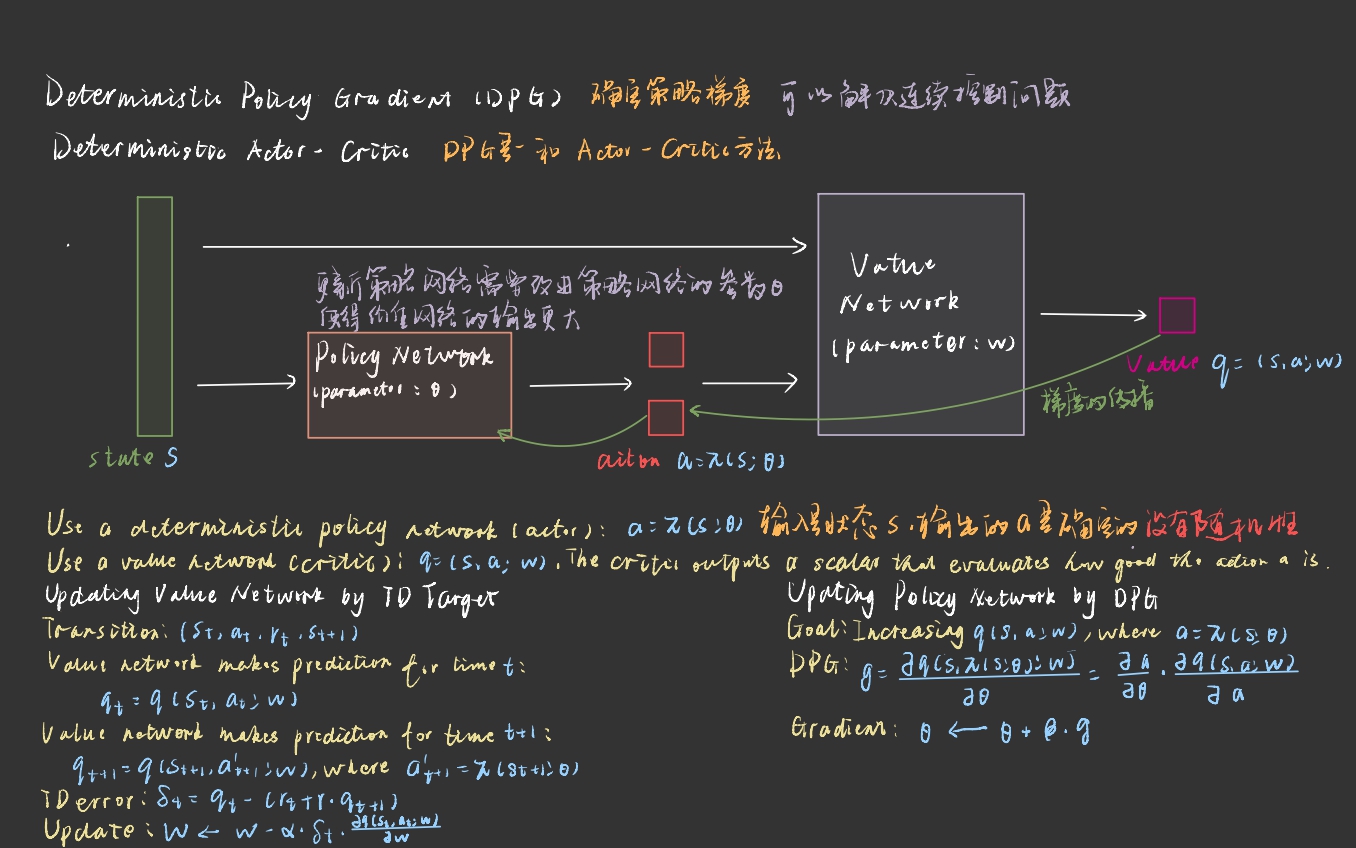 Deterministic Policy Gradient (DPG) 确定策略梯度 可以解决连续控制问题
Deterministic Actor-Critic DPG是一种 Actor-Critic方法
更新策略网络需要改进策略网络的参数θ
使得价值网络的输出更大
Policy Network
(parameter: θ)
Value
Network
(parameter: w)
Value q=(s,a;w)
梯度的传播
state s
aiton a=π(s;θ)
Use a deterministic policy network (actor): a=π(s;θ) 输入是状态s,输出的a是确定的没有随机性
Use a value network (critic): q=(s,a;w). The critic outputs a scalar that evaluates how good the action a is.
Updating Value Network by TD Target
Transition: (st, at, rt, st+1)
Value network makes prediction for time t:
qt=q(st,at;w)
Value network makes prediction for time t+1:
qt+1=q(st+1,a't+1;w), where a't+1=π(st+1;θ)
TD error: δt=qt-(rt+r·qt+1)
Update: w←w-α·δt·∂q(st,at;w)/∂w
Upating Policy Network by DPG
Goal: Increasing q(s,a;w), where a=π(s;θ)
DPG: g=∂q(s,π(s;θ);w)/∂θ=∂a/∂θ·∂q(s,a;w)/∂a
Gradient: θ←θ+β·g